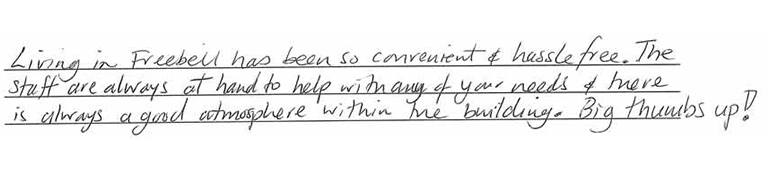 Living in Freebell has been so convenient & hassle free. The
staff are always at hand to help with any of your needs & there
is always a good atmosphere within the building. Big thumbs up!